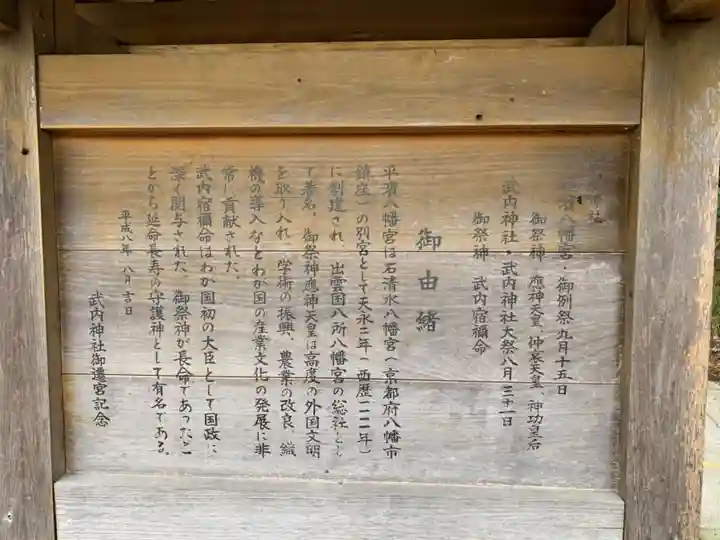 八幡宮・御例祭九月十五日
御祭神 應神天皇、仲哀天皇、神功皇后
武内神社・武内神社大祭八月三十一日
御祭神 武内宿禰命
御由緒
平濱八幡宮は石清水八幡宮(京都府八幡市
鎮座)の別宮として天永二年(西歴一一一一年)
に創建され、出雲国八所八幡宮の総社とし
て著名。御祭神應神天皇は高度の外国文明
を取り入れ、学術の振興、農業の改良、織
機の導入などわか国の産業文化の発展に非
常に貢献された。
武内宿禰命はわか国初の大臣として国政に
深く関与された。御祭神が長命であったこ
とから延命長寿の守護神として有名である。
平成八年八月吉日
武内神社御遷宮記念